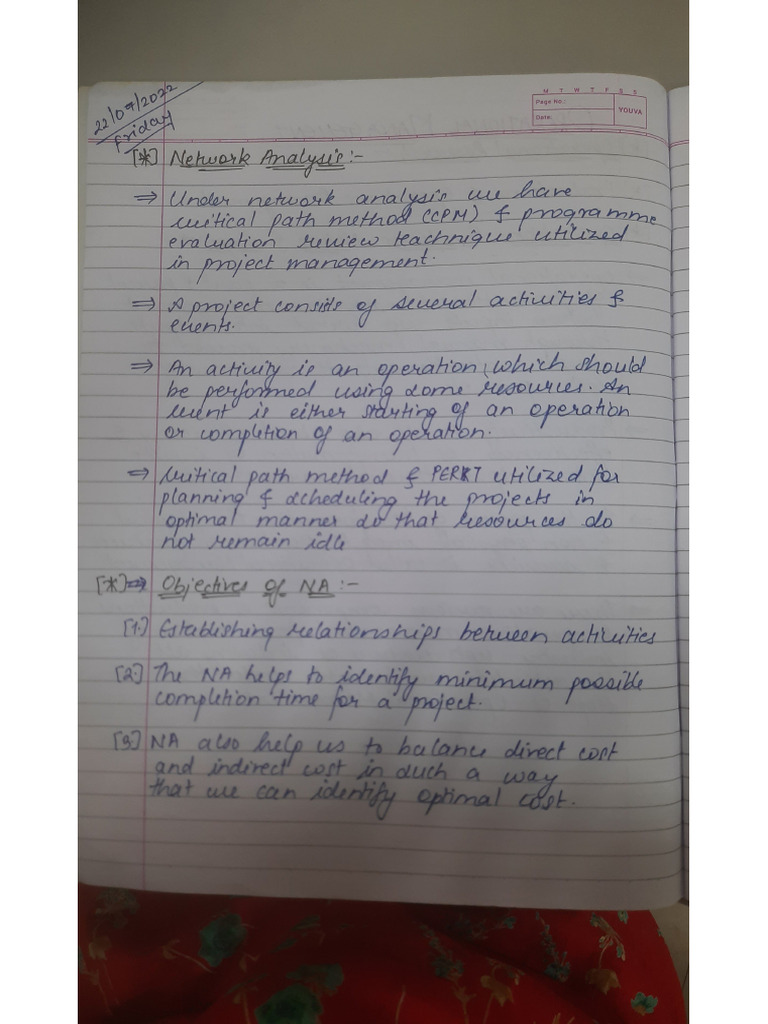 22/07/2022
Friday
M T W T F S S
Page No.:
Date:
YOUVA
[*] Network Analysis:-
⇒ Under network analysis we have
critical path method (CPM) & programme
evaluation review teachnique utilized
in project management.
⇒ A project consits of several activities &
events.
⇒ An activity is an operation, which should
be performed using some resources. An
event is either starting of an operation
or completion of an operation.
⇒ Critical path method & PERT utilized for
planning & scheduling the projects in
optimal manner so that resources do
not remain idle
[*]⇒ Objectives of NA:-
[1.] Establishing relationships between activities
[2.] The NA helps to identify minimum possible
completion time for a project.
[3.] NA also help us to balance direct cost
and indirect cost in such a way
that we can identify optimal cost.